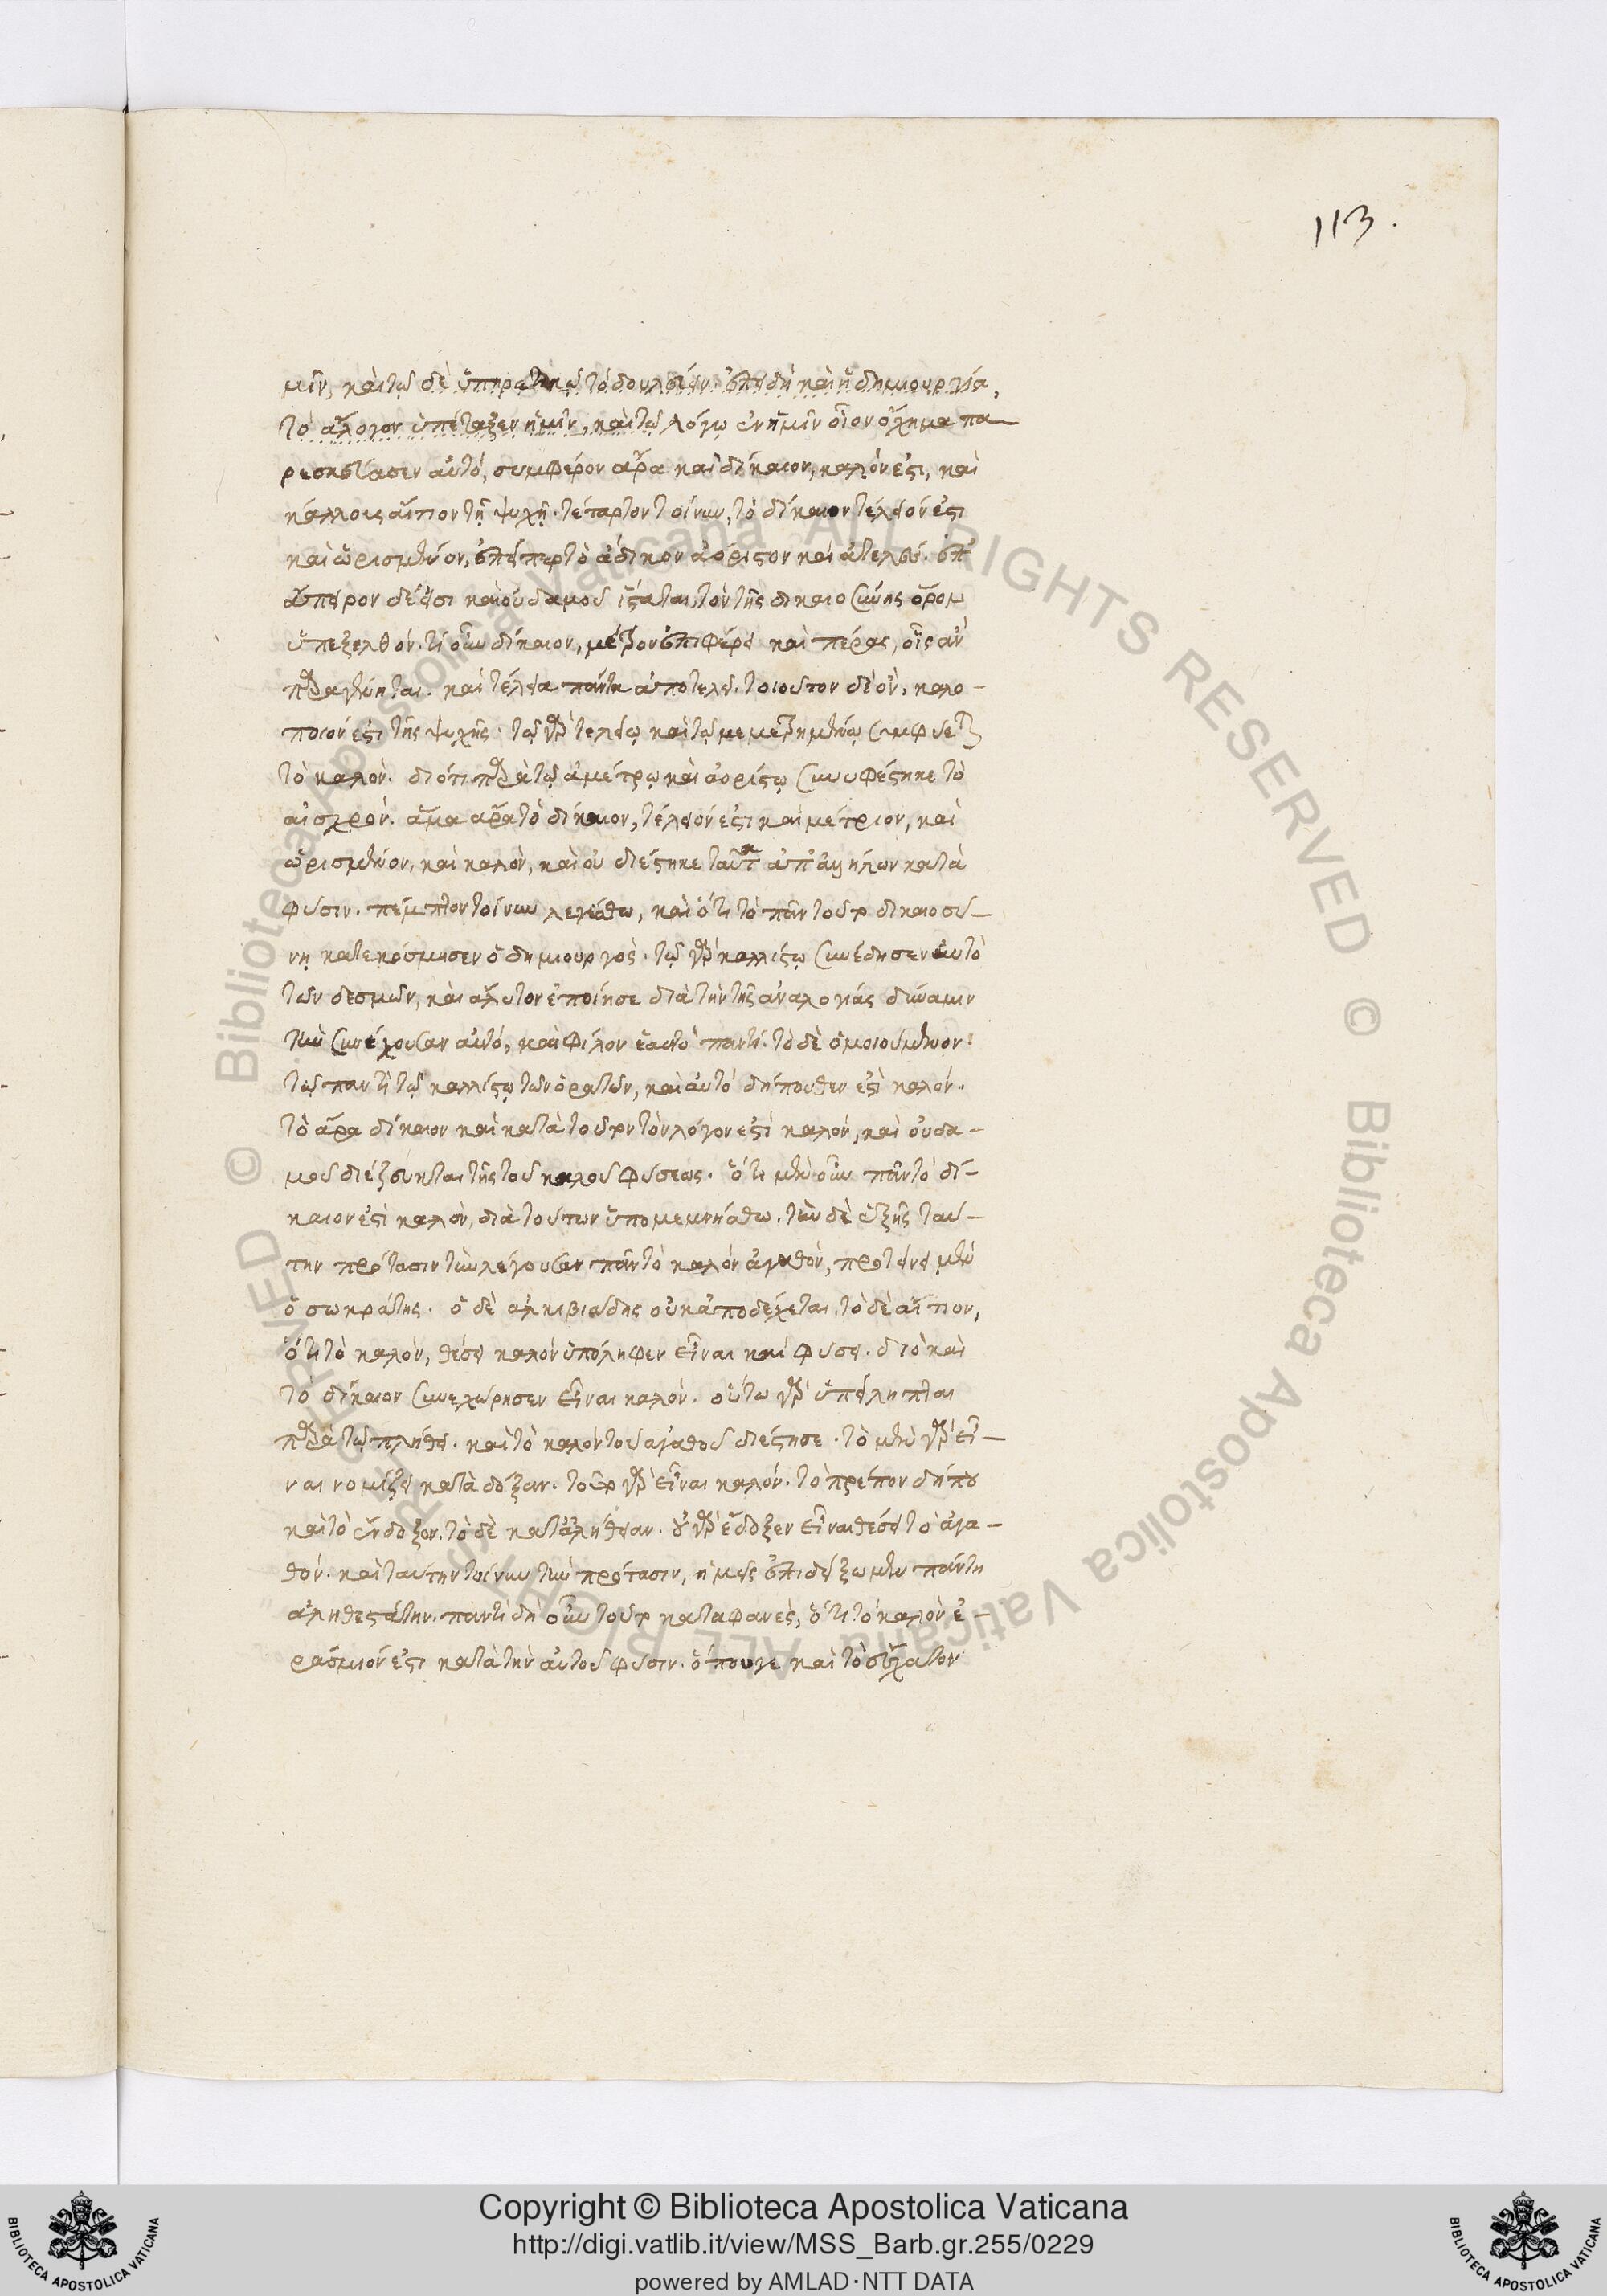 113.
μῖν, καὶ τῷ δὲ ὑπηρετικῷ τὸ δουλεύειν. ἐπειδὴ καὶ ἡ δημιουργία,
τὸ ἄλογον ὑπέταξεν ἡμῖν, καὶ τῷ λόγῳ ἐν ἡμῖν οἷον ὄχημα πα
ρεσκεύασεν αὐτό, συμφέρον ἄρα καὶ δίκαιον, καλόν ἐστι, καὶ
κάλλους αἴτιον τῇ ψυχῇ. τέταρτον τοίνυν, τὸ δίκαιον τέλειόν ἐστι
καὶ ὡρισμένον, ἐπείπερ τὸ ἄδικον ἀόριστον καὶ ἀτελές. ἐπ'
ἄπειρον δίεισι καὶ οὐδαμοῦ ἵσταται, τὸν τῆς δικαιοσύνης ὅρον
ὑπεξελθόν. τὸ οὖν δίκαιον, μέτρον ἐπιφέρει καὶ πέρας, οἷς ἂν
παραγένηται. καὶ τέλεια πάντα ἀποτελεῖ. τοιοῦτον δὲ ὄν, καλο-
ποιόν ἐστι τῆς ψυχῆς. τῷ γὰρ τελείῳ καὶ τῷ μεμετρημένῳ συμφύεται
τὸ καλόν. διότι παρὰ τῷ ἀμέτρῳ καὶ ἀορίστῳ συνυφέστηκε τὸ
αἰσχρόν. ἅμα ἄρα τὸ δίκαιον, τέλειόν ἐστι καὶ μέτριον, καὶ
ὡρισμένον, καὶ καλόν, καὶ οὐ διέστηκε ταῦτα ἀπ' ἀλλήλων κατὰ
φύσιν. πέμπτον τοίνυν λεγέσθω, καὶ ὅτι τὸ πᾶν τοῦτο δικαιοσύ-
νῃ κατεκόσμησεν ὁ δημιουργός. τῷ γὰρ καλλίστῳ συνέδησεν αὐτὸ
τῶν δεσμῶν, καὶ ἄλυτον ἐποίησε διὰ τὴν τῆς ἀναλογίας δύναμιν
τὴν συνέχουσαν αὐτό, καὶ φίλον ἑαυτῷ παντί. τὸ δὲ ὁμοιούμενον
τῷ παντὶ τῷ καλλίστῳ τῶν ὁρατῶν, καὶ αὐτὸ δήπουθεν ἐστὶ καλόν.
τὸ ἄρα δίκαιον καὶ κατὰ τοῦτον τὸν λόγον ἐστὶ καλόν, καὶ οὐδα-
μοῦ διέζευκται τῆς τοῦ καλοῦ φύσεως. ὅτι μὲν οὖν πᾶν τὸ δί-
καιον ἐστὶ καλόν, διὰ τούτων ὑπομεμνήσθω. τὴν δὲ ἑξῆς ταύ-
την πρότασιν τὴν λέγουσαν πᾶν τὸ καλὸν ἀγαθόν, προτείνει μὲν
ὁ σωκράτης. ὁ δὲ ἀλκιβιάδης οὐκ ἀποδέχεται. τὸ δὲ αἴτιον,
ὅτι τὸ καλόν, θέσει καλὸν ὑπείληφεν εἶναι καὶ φύσει. διὸ καὶ
τὸ δίκαιον συνεχώρησεν εἶναι καλόν. οὕτω γὰρ ὑπείληπται
παρὰ τῷ πλήθει. καὶ τὸ καλὸν τοῦ ἀγαθοῦ διέστησε. τὸ μὲν γὰρ εἶ-
ναι νομίζει κατὰ δόξαν. τοῦτο γὰρ εἶναι καλόν. τὸ πρέπον δήπου
καὶ τὸ ἔνδοξον. τὸ δὲ κατ' ἀλήθειαν. οὐ γὰρ ἔδοξεν εἶναι θέσει τὸ ἀγα-
θόν. καὶ ταύτην τοίνυν τὴν πρότασιν, ἡμεῖς ἐπιδείξωμεν πάντη
ἀληθεστάτην. παντὶ δὴ οὖν τοῦτο καταφανές, ὅτι τὸ καλὸν ἐ-
ράσμιόν ἐστι κατὰ τὴν αὐτοῦ φύσιν. ὅπου γε καὶ τὸ ἔσχατον
Copyright © Biblioteca Apostolica Vaticana
http://digi.vatlib.it/view/MSS_Barb.gr.255/0229
powered by AMLAD·NTT DATA